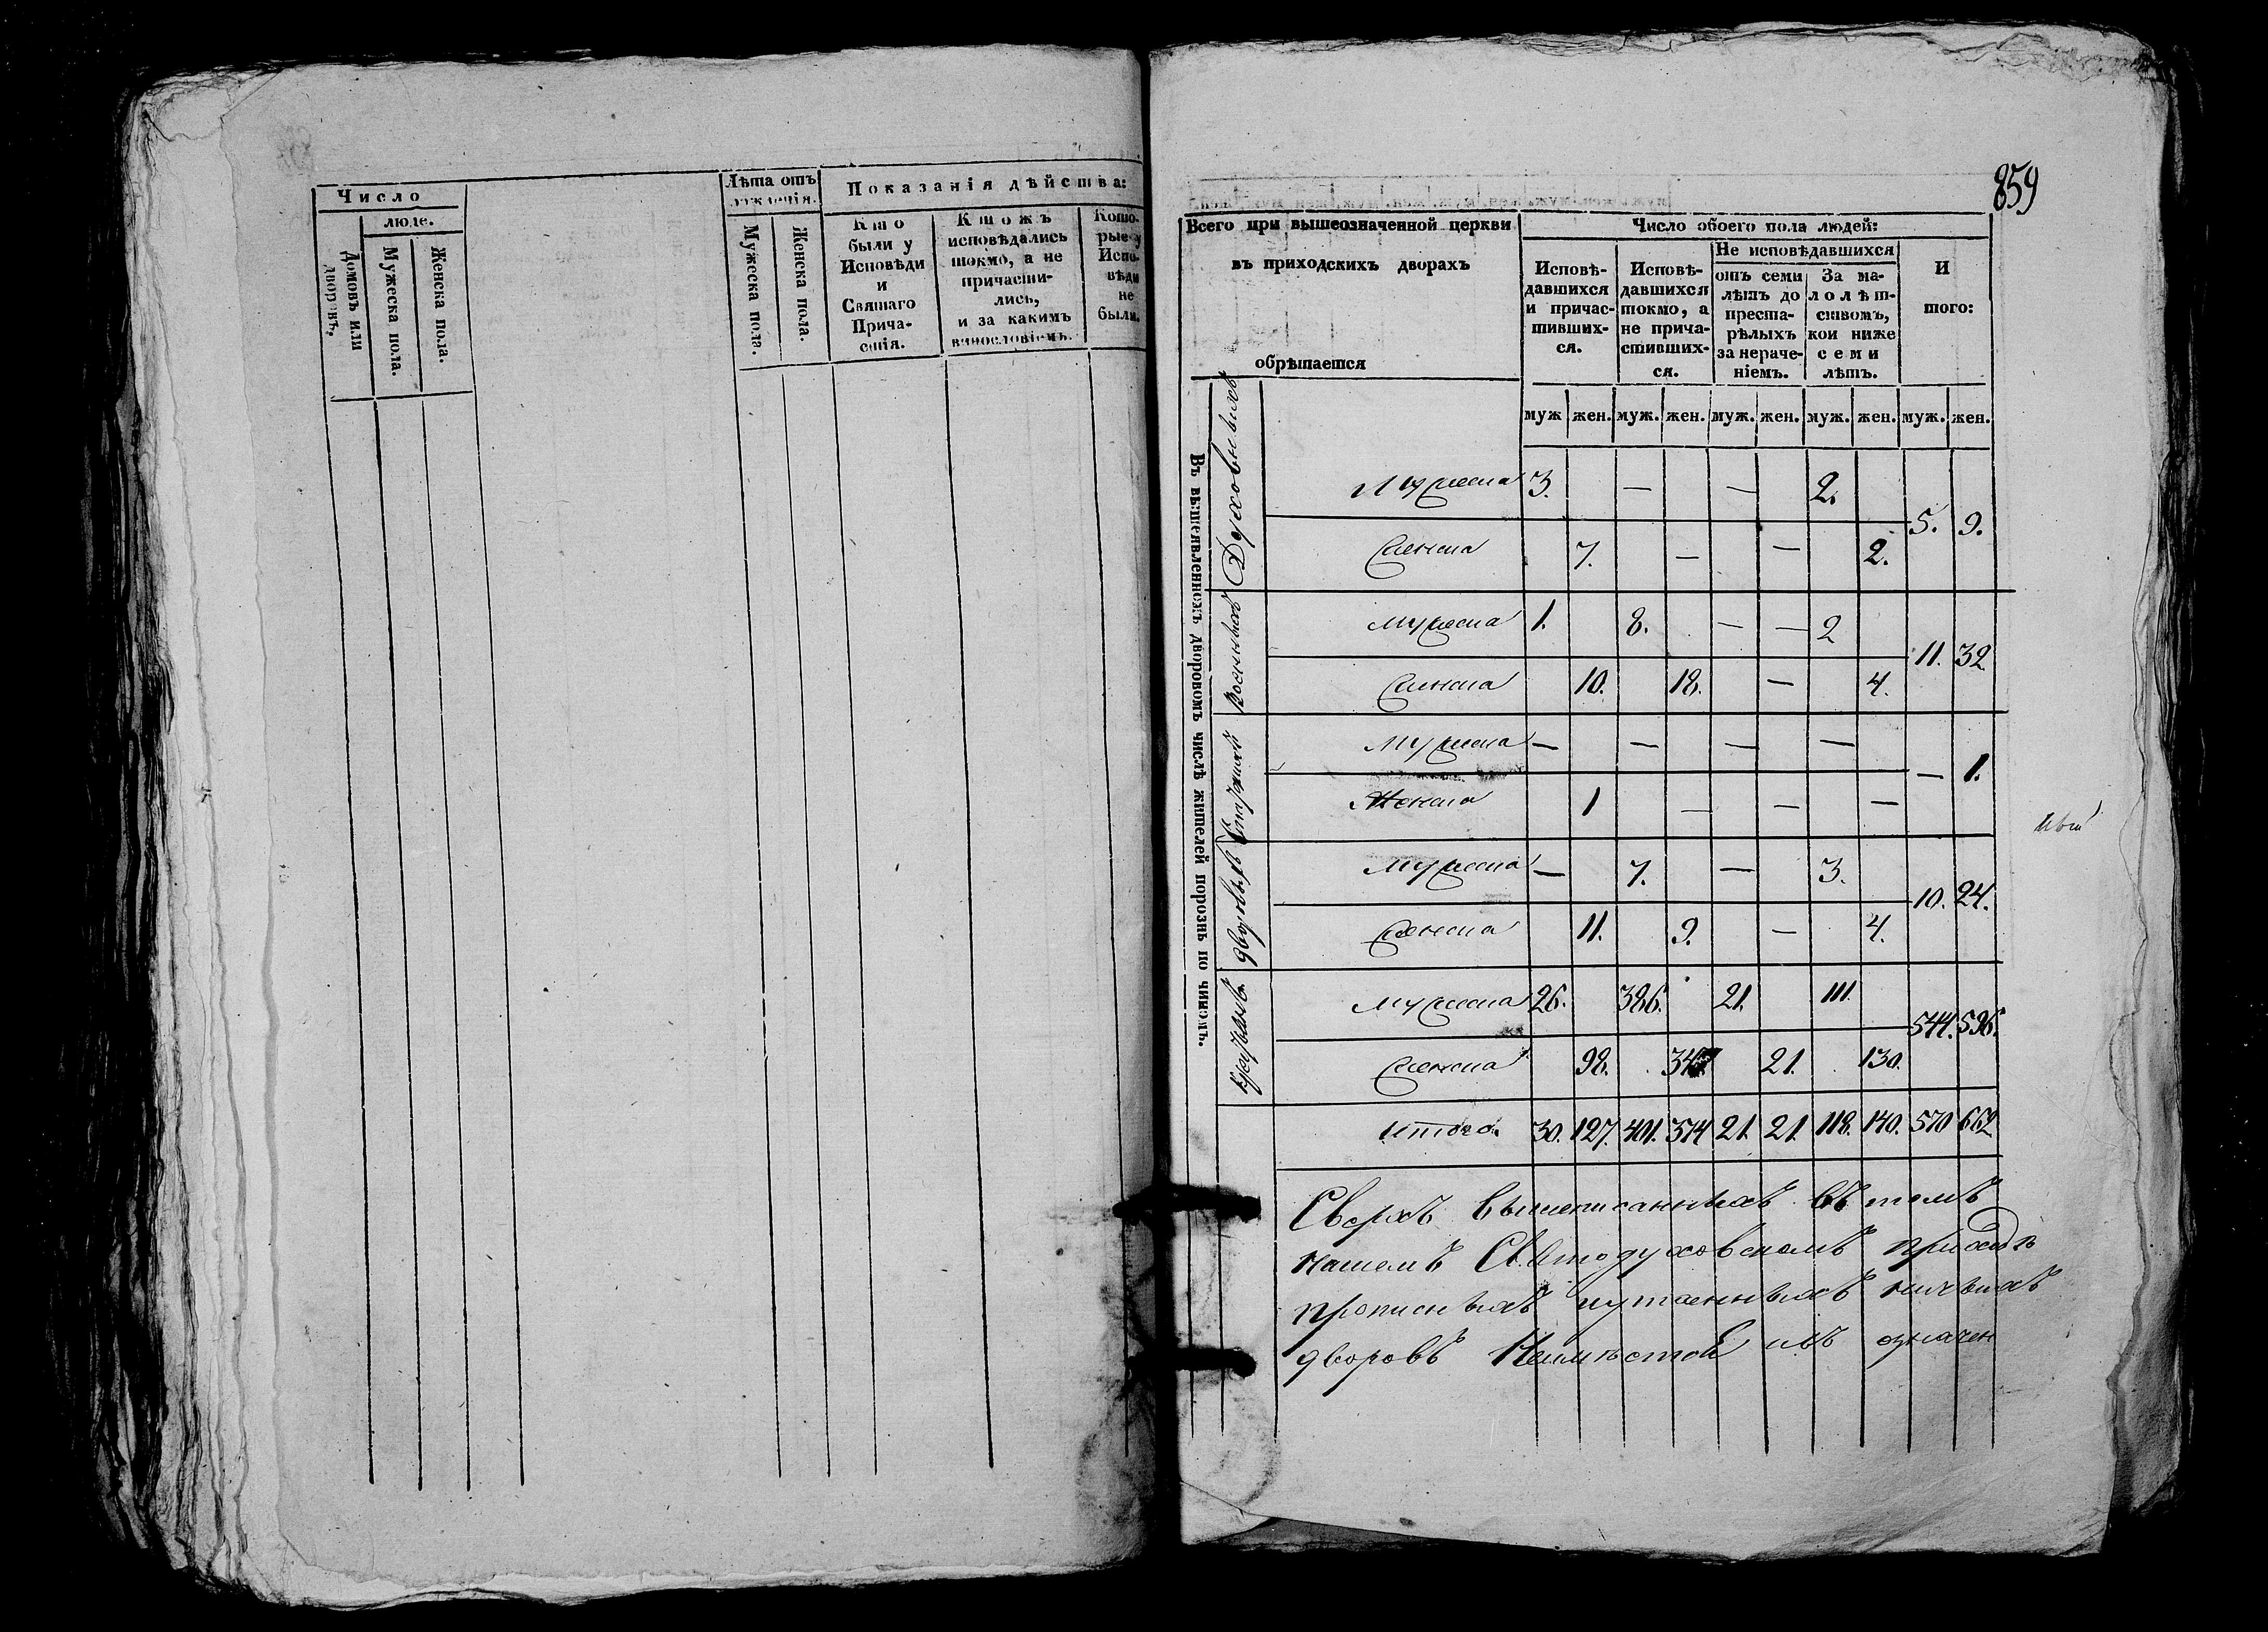 Число
люде.
Домовъ или дворовъ.
Мужеска пола.
Женска пола.
Лѣта отъ рожденія.
Мужеска пола.
Женска пола.
Показанія дѣйства:
Кто были у Исповѣди и Святаго Причастія.
Ктожъ исповѣдались токмо, а не причастились, и за какимъ винословіемъ.
Которые у Исповѣди не были.
859
Всего при вышеозначенной церкви
въ приходскихъ дворахъ
обрѣтается
Число обоего пола людей:
Исповѣдавшихся и причастившихся.
Исповѣдавшихся токмо, а не причастившихся.
Не исповѣдавшихся
отъ семи лѣтъ до престарѣлыхъ за нераченіемъ.
За малолѣтствомъ, кои ниже семи лѣтъ.
И того:
муж жен. муж. жен. муж. жен. муж. жен. муж. жен.
Въ вышеявленномъ дворовомъ числѣ жителей порознь по чиномъ.
Духовныхъ
Мужеска 3. — — 2.
5. 9.
Женска 7. — — 2.
Военныхъ
Мужеска 1. 8. — — 2
11. 32.
Женска 10. 18. — 4.
Мужеска — — — —
— 1.
Женска 1 — — —
дворовыхъ
Мужеска — 7. — 3.
10. 24.
Женска 11. 9. — 4.
крестьянъ
Мужеска 26. 386. 21. 111.
544. 596.
Женска 98. 347 21. 130.
Итого. 30. 127. 401. 374 21. 21. 118. 140. 570 662
Сверхъ вышеписанныхъ въ томъ
нашемъ Святодуховскомъ приходѣ
прописныхъ иутаенныхъ никакихъ
дворовъ Неимѣется имъ означен